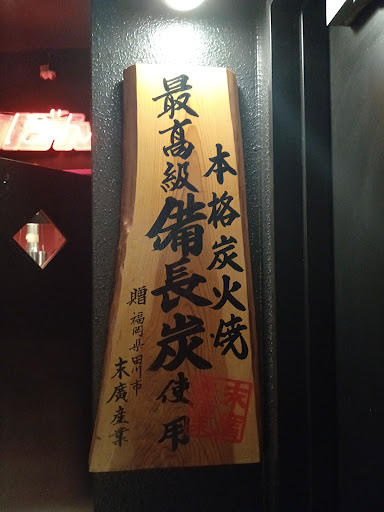 本格炭火焼
最高級備長炭使用
贈 福岡県田川市
末廣産業